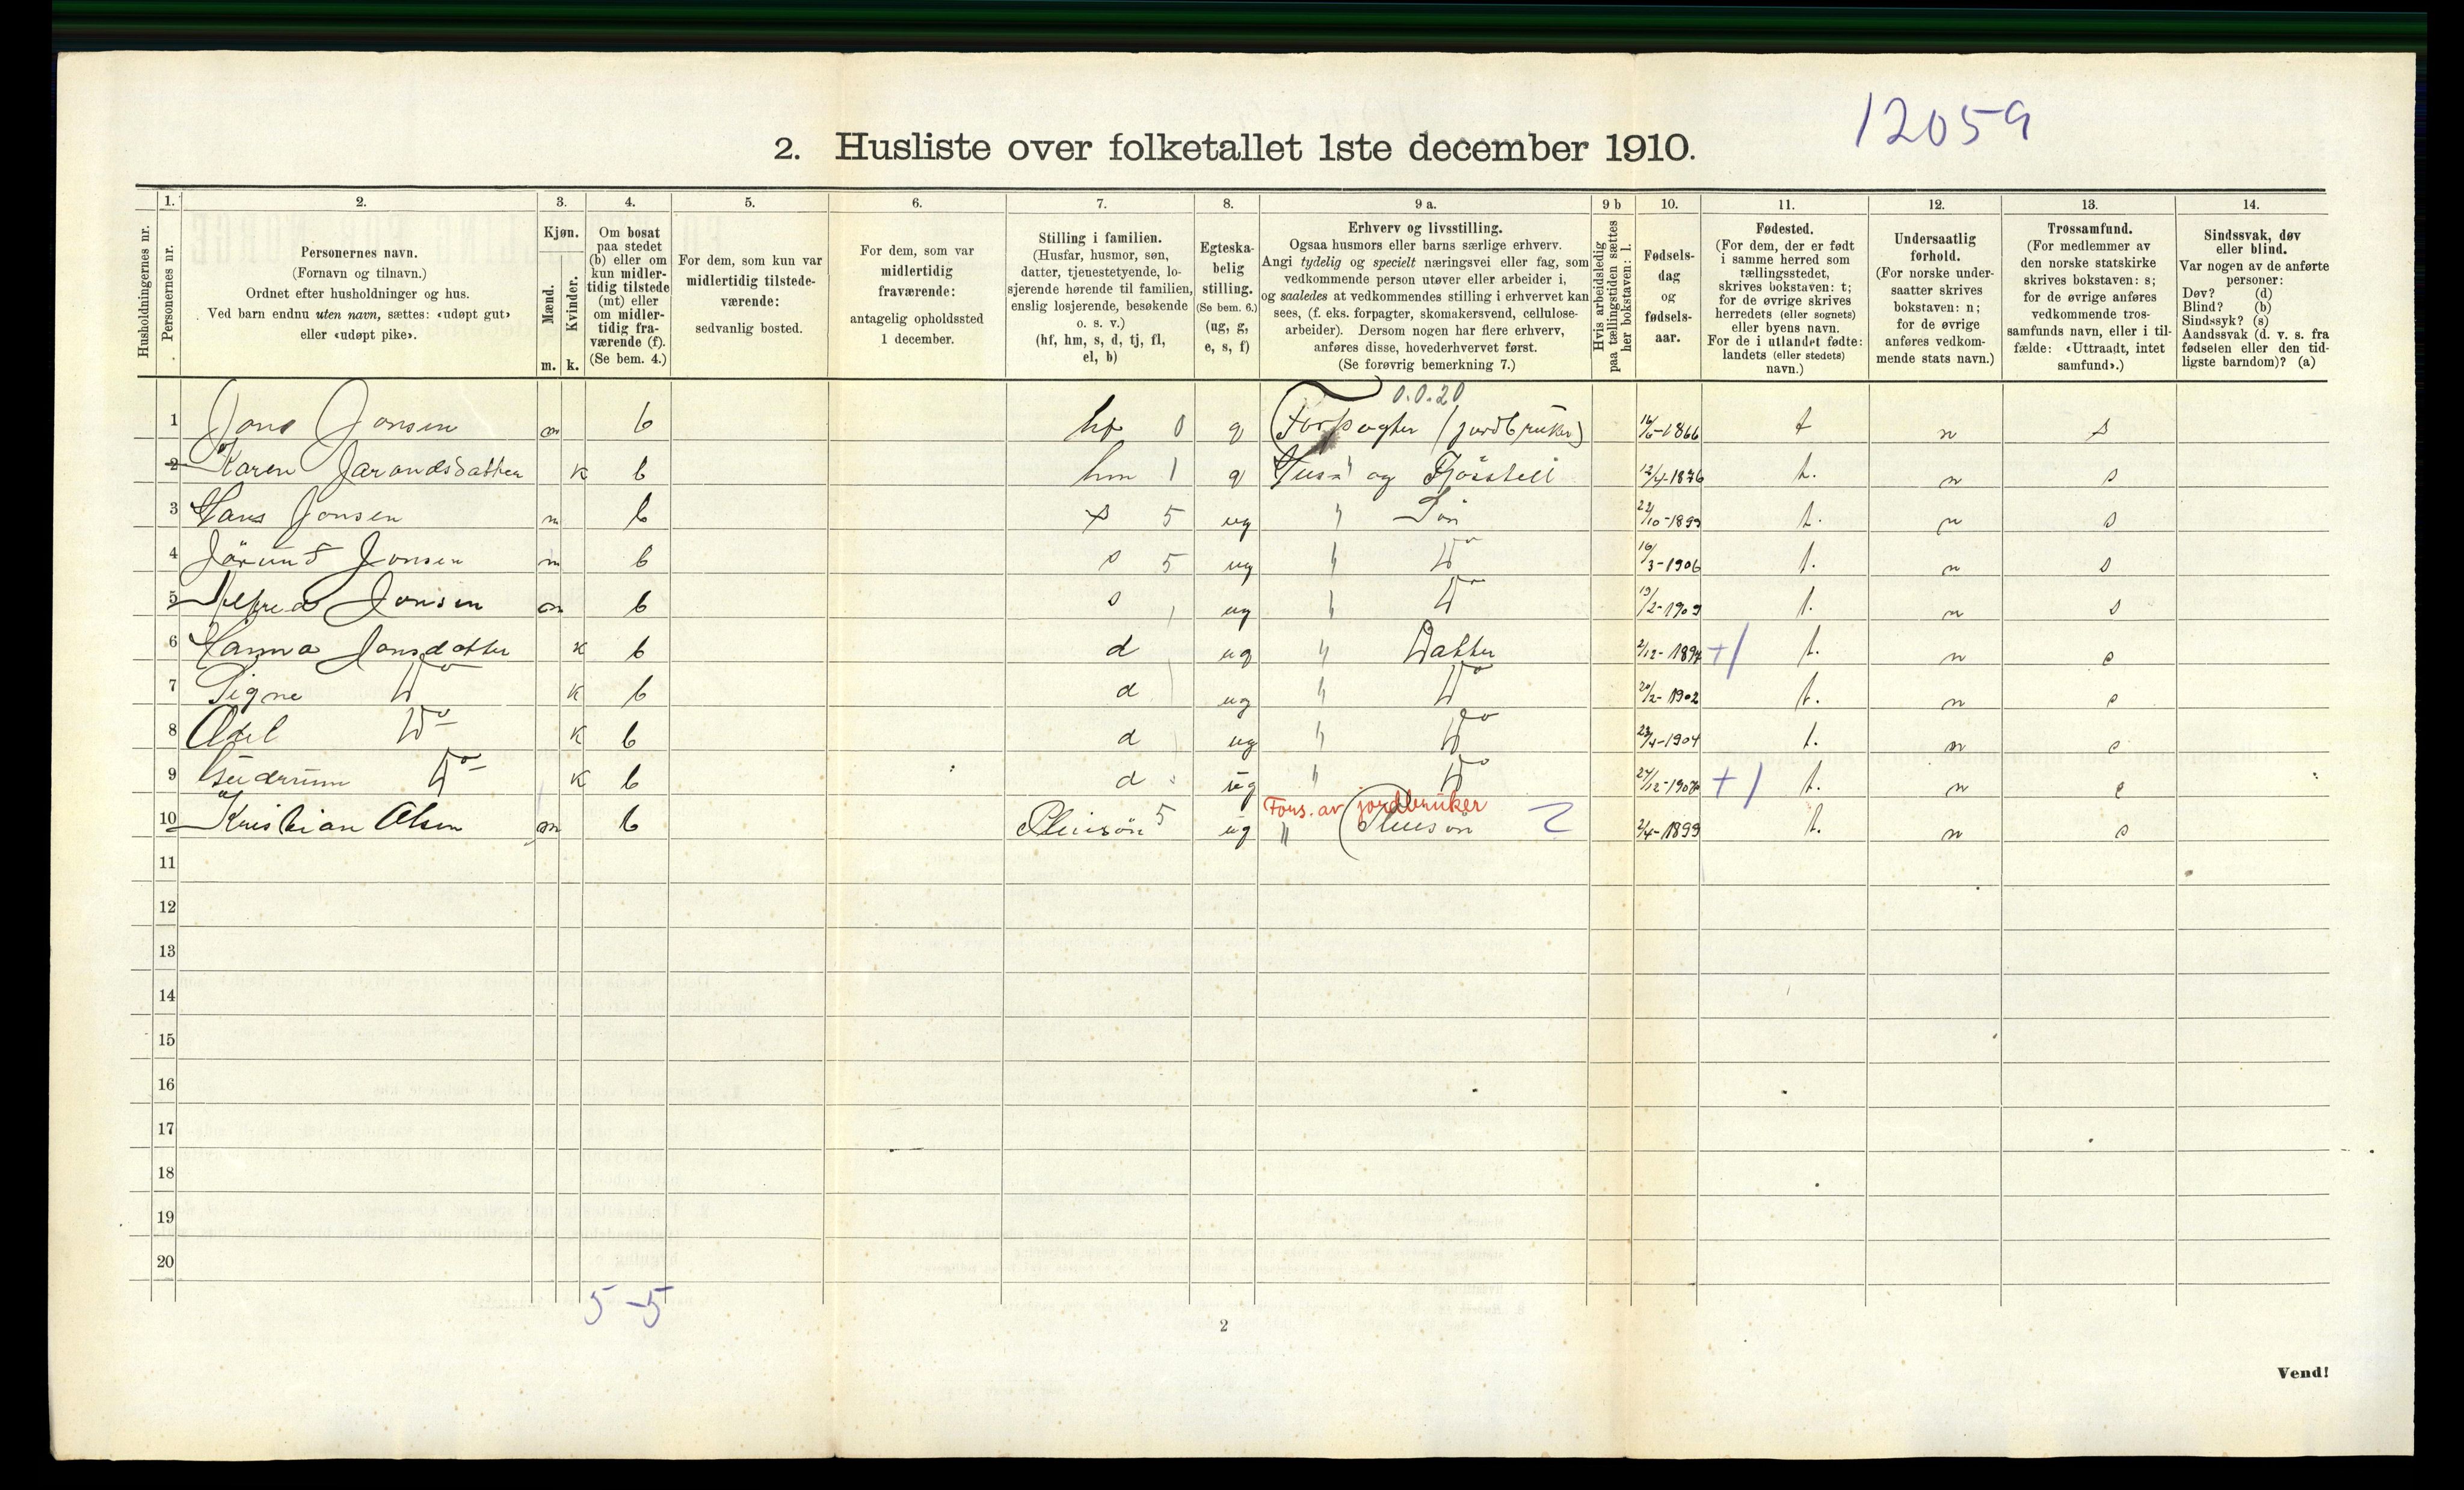 12059
2. Husliste over folketallet 1ste december 1910.
Husholdningernes nr.
1.
Personernes nr.
2.
Personernes navn.
(Fornavn og tilnavn.)
Ordnet efter husholdninger og hus.
Ved barn endnu uten navn, sættes: «udøpt gut»
eller «udøpt pike».
3.
Kjøn.
Mænd.
m.
Kvinder.
k.
4.
Om bosat
paa stedet
(b) eller om
kun midler-
tidig tilstede
(mt) eller
om midler-
tidig fra-
værende (f).
(Se bem. 4.)
5.
For dem, som kun var
midlertidig tilstede-
værende:
sedvanlig bosted.
6.
For dem, som var
midlertidig
fraværende:
antagelig opholdssted
1 december.
7.
Stilling i familien.
(Husfar, husmor, søn,
datter, tjenestetyende, lo-
sjerende hørende til familien,
enslig losjerende, besøkende
o. s. v.)
(hf, hm, s, d, tj, fl,
el, b)
8.
Egteska-
belig
stilling.
(Se bem. 6.)
(ug, g,
e, s, f)
9 a.
Erhverv og livsstilling.
Ogsaa husmors eller barns særlige erhverv.
Angi tydelig og specielt næringsvei eller fag, som
vedkommende person utøver eller arbeider i,
og saaledes at vedkommendes stilling i erhvervet kan
sees, (f. eks. forpagter, skomakersvend, cellulose-
arbeider). Dersom nogen har flere erhverv,
anføres disse, hovederhvervet først.
(Se forøvrig bemerkning 7.)
9 b
Hvis arbeidsledig
paa tællingstiden sættes
her bokstaven: l.
10.
Fødsels-
dag
og
fødsels-
aar.
11.
Fødested.
(For dem, der er født
i samme herred som
tællingsstedet,
skrives bokstaven: t;
for de øvrige skrives
herredets (eller sognets)
eller byens navn.
For de i utlandet fødte:
landets (eller stedets)
navn.)
12.
Undersaatlig
forhold.
(For norske under-
saatter skrives
bokstaven: n;
for de øvrige
anføres vedkom-
mende stats navn.)
13.
Trossamfund.
(For medlemmer av
den norske statskirke
skrives bokstaven: s;
for de øvrige anføres
vedkommende tros-
samfunds navn, eller i til-
fælde: «Uttraadt, intet
samfund».)
14.
Sindssvak, døv
eller blind.
Var nogen av de anførte
personer:
Døv? (d)
Blind? (b)
Sindssyk? (s)
Aandssvak (d. v. s. fra
fødselen eller den tid-
ligste barndom)? (a)
0.0.20
1 Jens Jonsen m b hf 0 g Forpagter (jordbruker) 1866 t n s
2 Karen Jarandsdatter k b hm 1 g Hus og Fjösstell 12/4-1876 t. n s
3 Hans Jonsen m b s 5 ug " Sön 22/10-1899 t. n s
4 Jörund Jonsen m b s 5 ug " Do 16/3-1906 t. n s
5 Alfred Jonsen m b s ug " Do 13/2-1909 t. n s
6 Hanna Jonsdatter k b d ug " Datter 2/12-1897 +1 t. n s
7 Signe Do k b d ug " Do 20/2-1902 t. n s
8 Adel Do k b d ug " Do 1904 t. n s
9 Gudrunn Do k b d ug " Do +1 t. n s
Fors. av jordbruker
10 Kristian Olsen m b Pleisön 5 ug " Pleiesön 2 2/4-1899 t. n s
11
12
13
14
15
16
17
18
19
20
5-5
2
Vend!